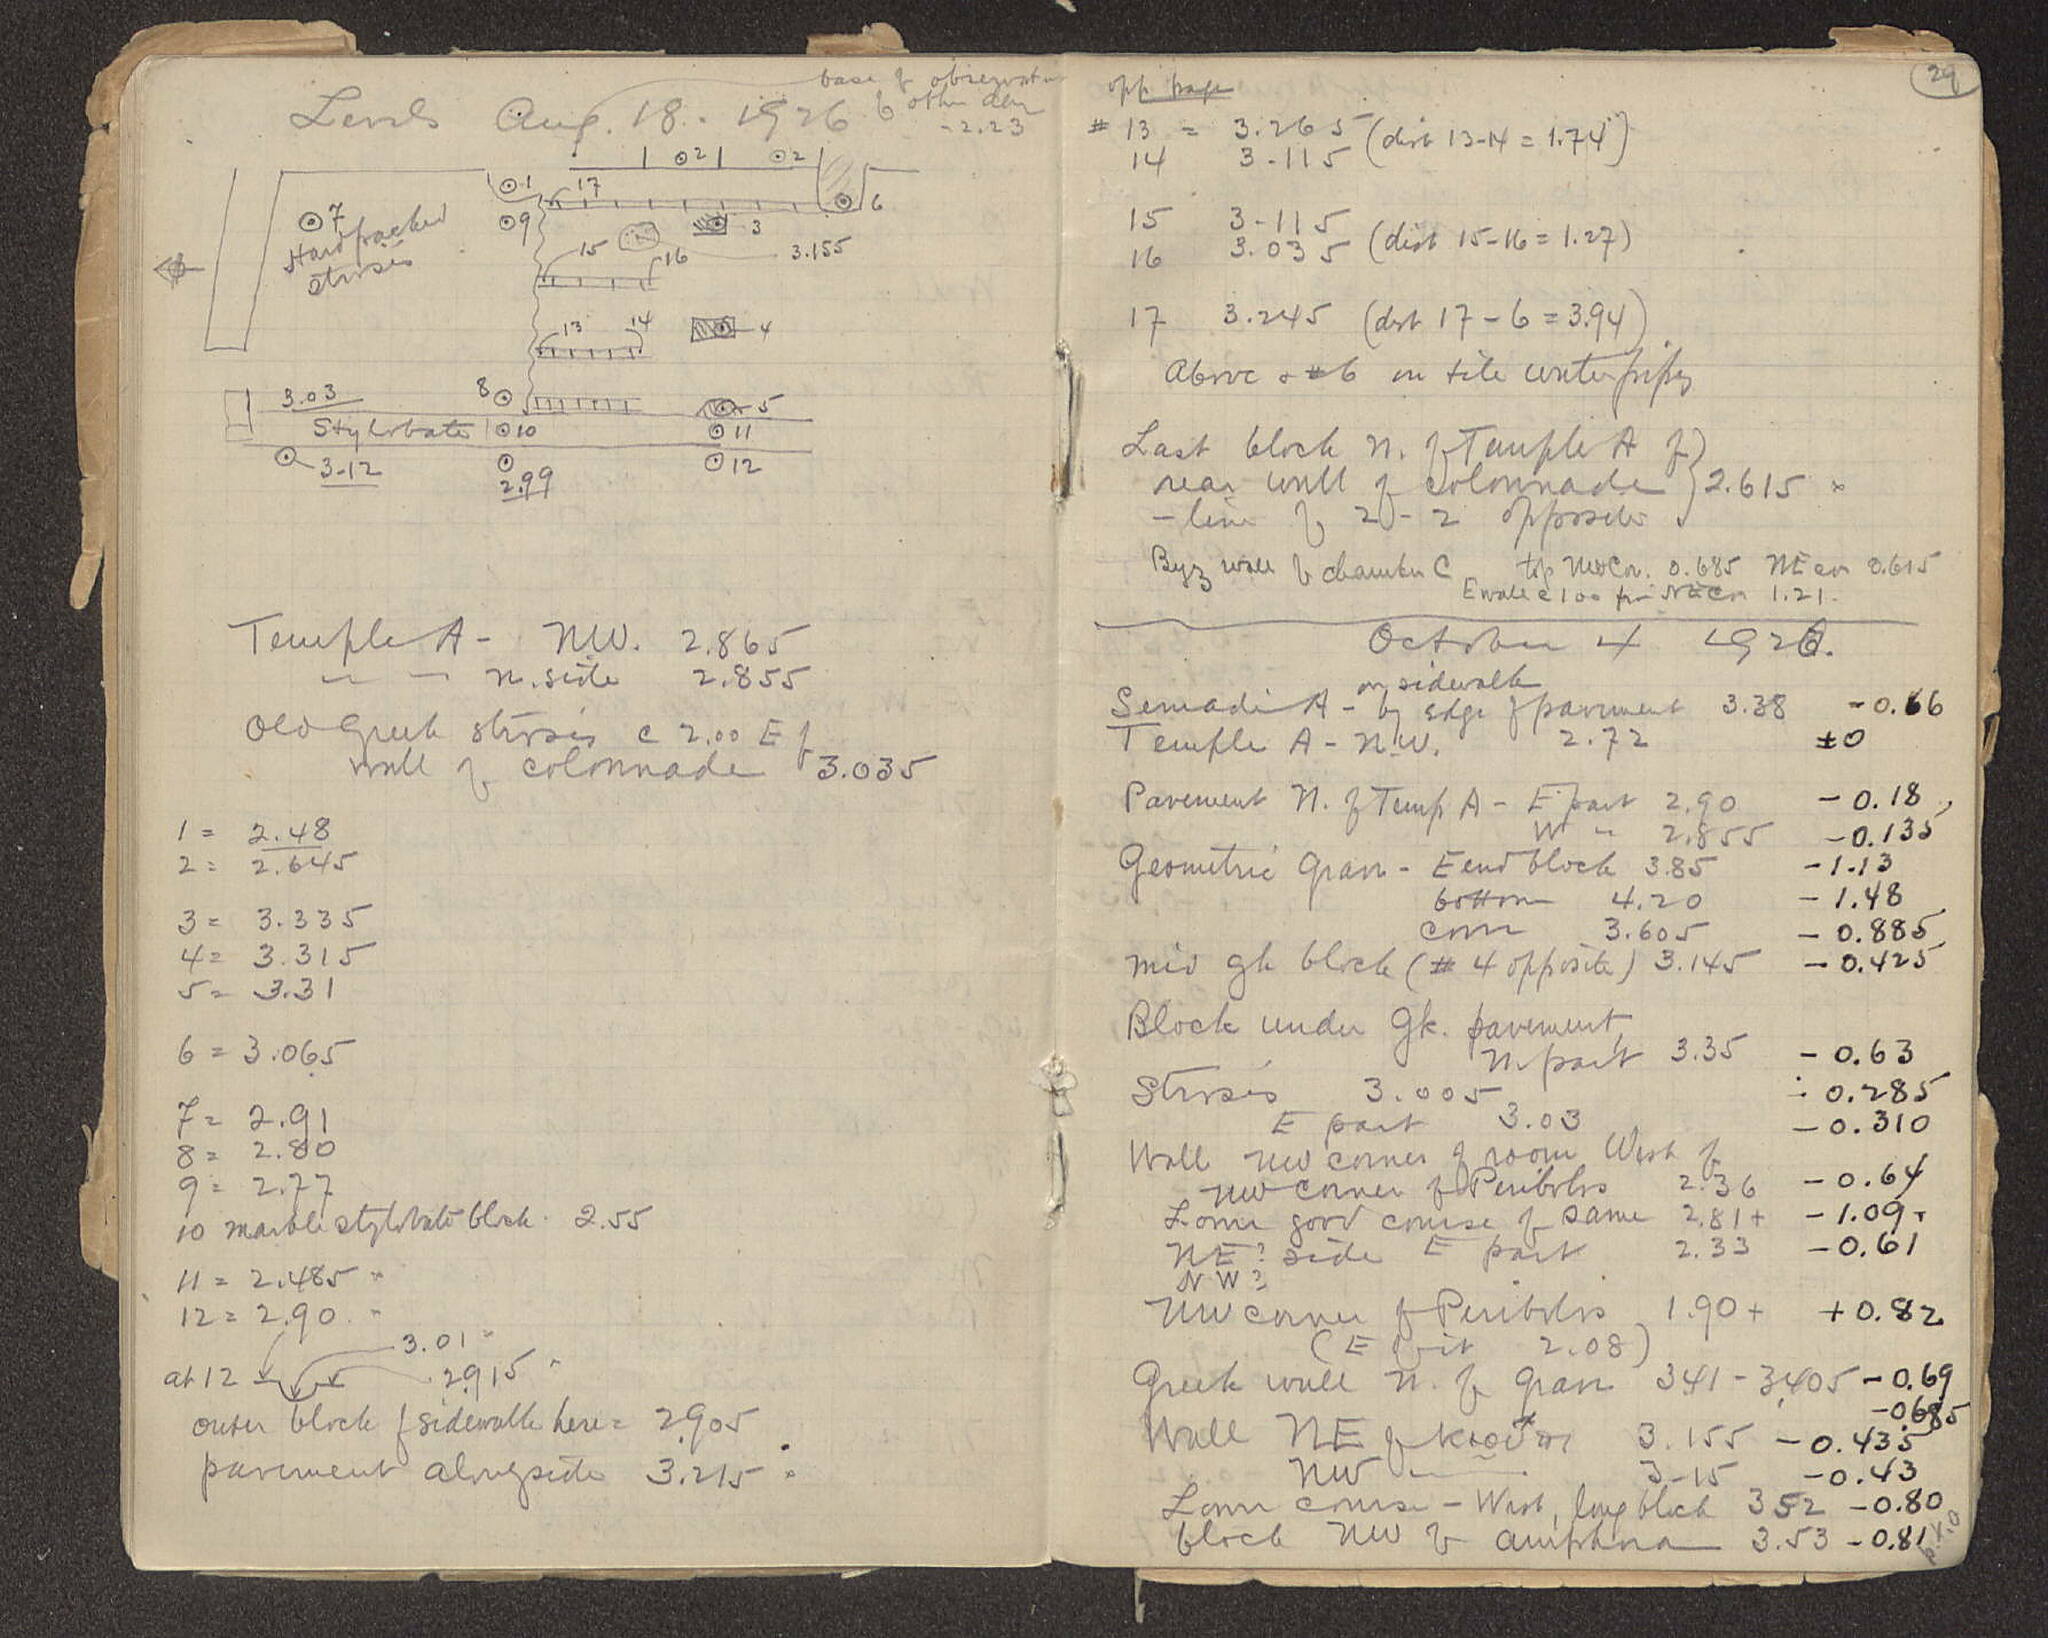 base of observation
Levels Aug. 18. 1926 6 other day
-2.23
2 2
1 17
7 9 6
Hard packed 3
strosis 15 16 3.155
13 14
4
3.03 8 5
Stylobate 10 11
3-12 2.99 12
Temple A - NW. 2.865
" " n. side 2.855
Old Greek strosis c 2.00 E of
wall of colonnade 3.035
1 = 2.48
2 = 2.645
3 = 3.335
4 = 3.315
5 = 3.31
6 = 3.065
7 = 2.91
8 = 2.80
9 = 2.77
10 marble stylobate block. 2.55
11 = 2.485 "
12 = 2.90 "
3.01 "
at 12 2.915 "
outer block of sidewalk here = 2.905
pavement alongside 3.215
29
opp page
# 13 = 3.265 (dist 13-14 = 1.74)
14 3-115
15 3-115
16 3.035 (dist 15-16 = 1.27)
17 3.245 (dist 17-6 = 3.94)
Above & #6 on tile waterpipes
Last block N. of Temple A of
rear wall of colonnade 2.615 "
- line of 2 - 2 opposite
Byz wall of chamber C top NW Cor. 0.685 NE cor 0.615
E wall c 1.00 from NE Cor 1.21.
October 4 1926.
on sidewalk
Semadi A - by edge of pavement 3.38 -0.66
Temple A - N.W. 2.72 ±0
Pavement N. of Temp A - E part 2.90 -0.18
W " 2.855 -0.135
Geometric Grave - E end block 3.85 -1.13
bottom 4.20 -1.48
cover 3.605 -0.885
mid gk block (# 4 opposite) 3.145 -0.425
Block under Gk. pavement,
N part 3.35 -0.63
Strosis 3.005 - 0.285
E part 3.03 -0.310
Wall NW corner of room West of
NW corner of Peribolos 2.36 -0.64
Lower good course of same 2.81+ -1.09+
NE? side E part 2.33 -0.61
NW?
NW corner of Peribolos 1.90+ +0.82
(E of it 2.08)
Greek wall N. of Grave 3.41 - 3.405 -0.69
-0.685
Wall NE of 3.155 -0.435
NW " 3-15 -0.43
Lower course - West, long block 3.52 -0.80
block NW of amphora 3.53 -0.81
P.T.O